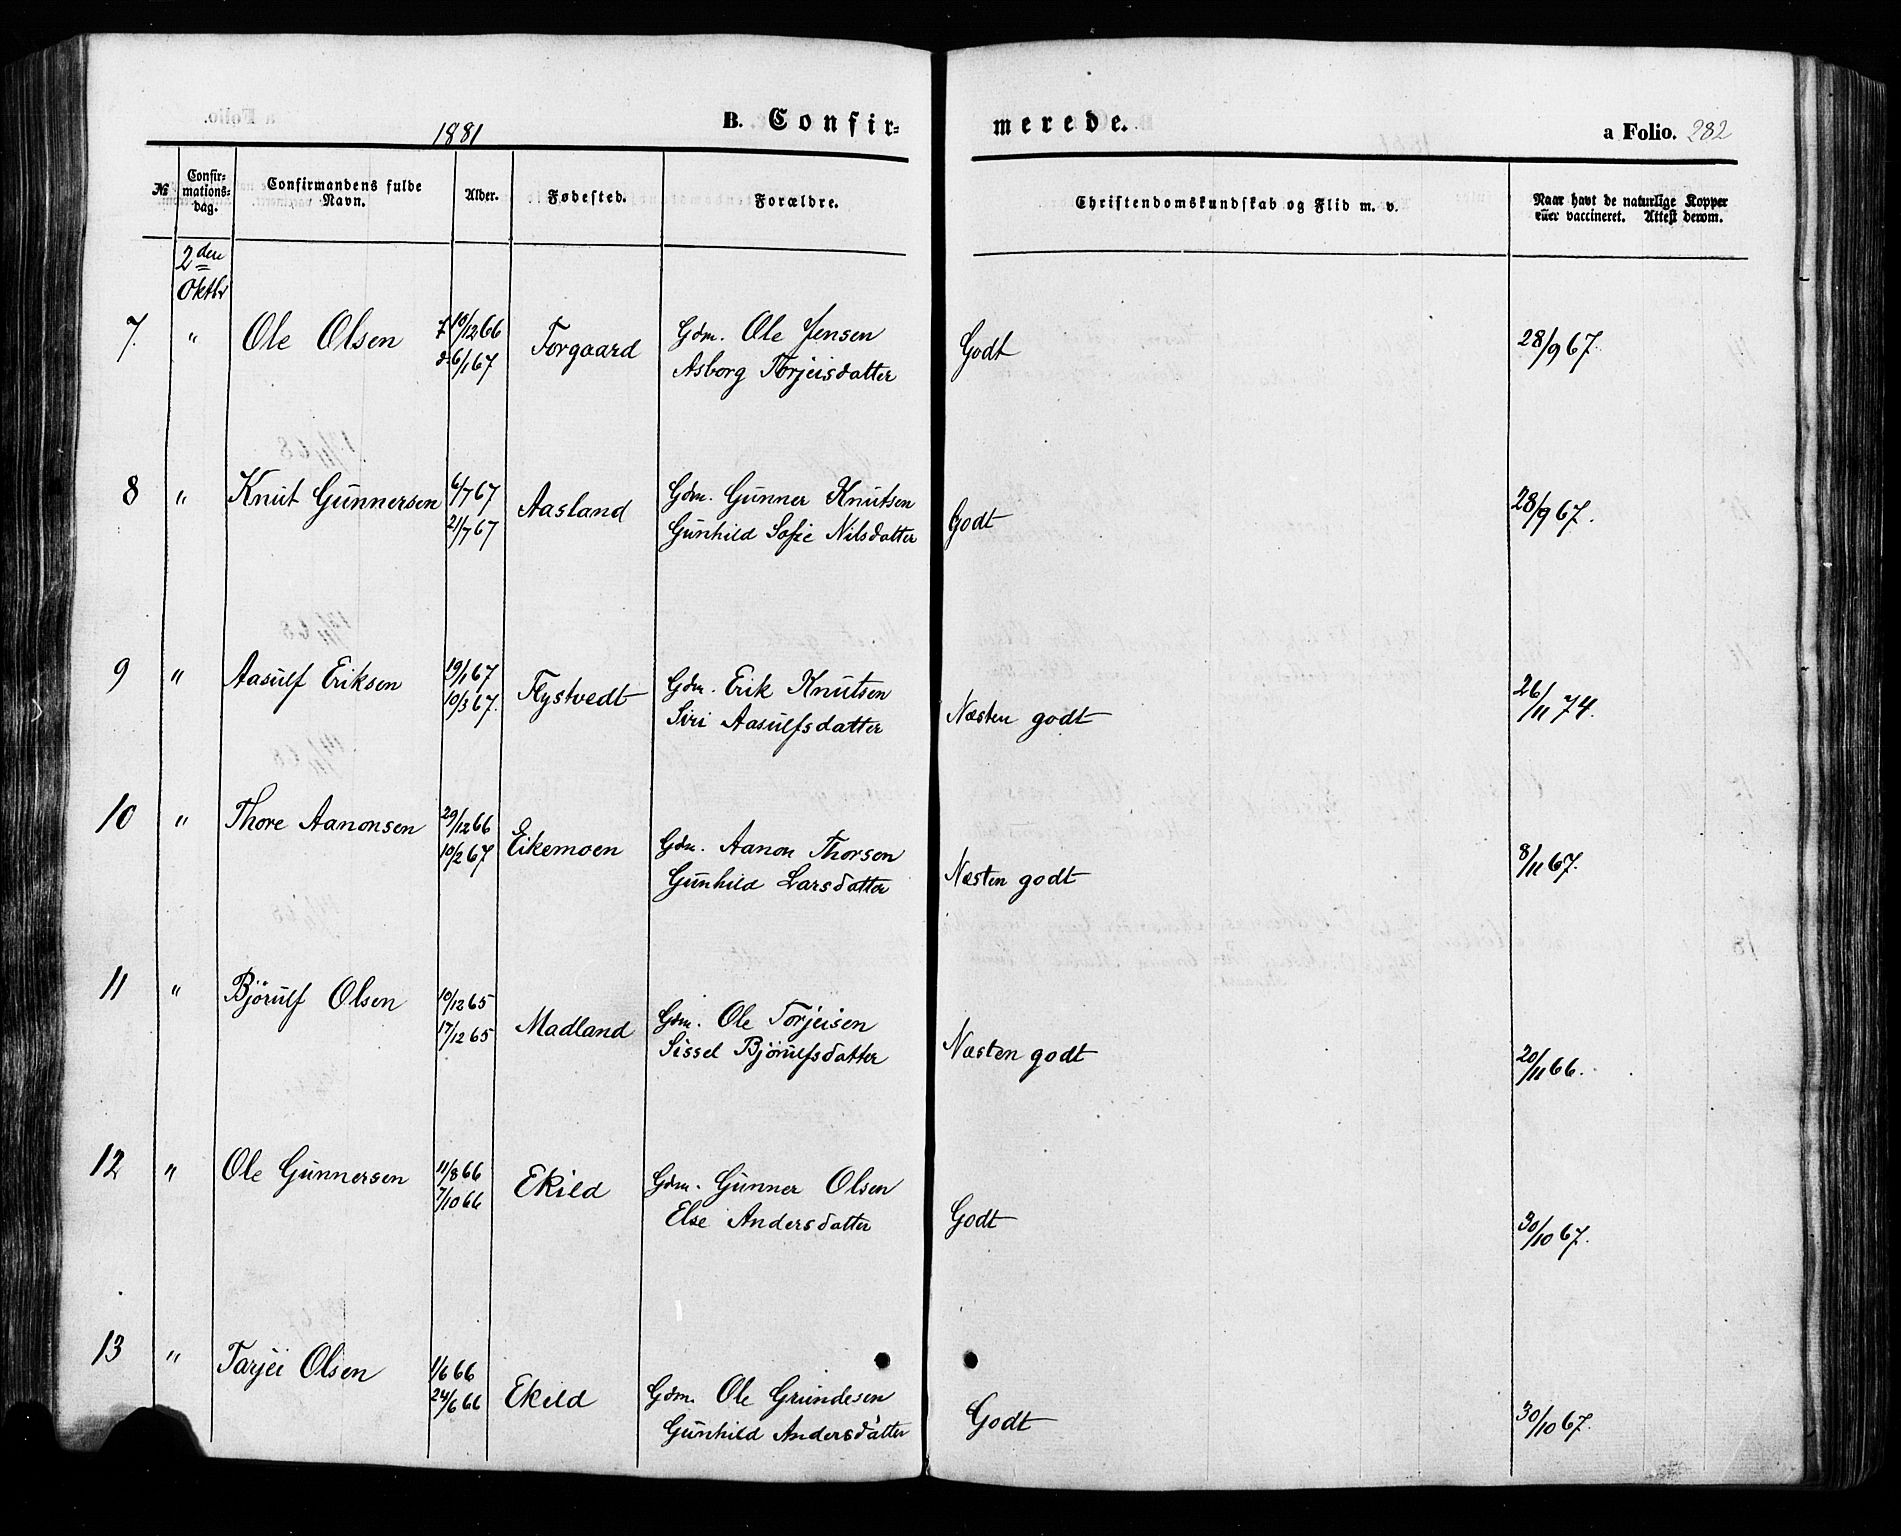 1881
B. Confir-
merede.
a Folio. 282
№
Confir-
mations-
dag.
Confirmandens fulde
Navn.
Alder.
Fødested.
Forældre.
Christendomskundskab og Flid m. v.
Naar havt de naturlige Kopper
eller vaccineret. Attest derom.
2den
Oktbr
7. " Ole Olsen f 10/12 66 Torgaard Gdm. Ole Jensen Godt 28/9 67.
d 6/1 67 Asborg Torjeisdatter
8 " Knut Gunnersen 6/7 67 Aasland Gdm. Gunner Knutsen Godt 28/9 67.
21/7 67 Gunhild Sofie Nilsdatter
9 " Aasulf Eriksen 19/1 67 Flystvedt Gdm. Erik Knutsen Næsten godt 26/11 74.
10/3 67. Siri Aasulfsdatter
10 " Thore Aanonsen 29/12 66 Eikemoen Gdm. Aanon Thorsen Næsten godt 8/11 67.
10/2 67 Gunhild Larsdatter
11 " Bjørulf Olsen 10/12 65 Madland Gdm. Ole Torjeisen Næsten godt 20/11 66.
17/12 65 Sissel Bjørulfsdatter
12 " Ole Gunnersen 11/8 66 Ekild Gdm. Gunner Olsen Godt 30/10 67.
7/10 66 Else Andersdatter
13 " Tarjei Olsen 1/6 66 Ekild Gdm. Ole Grundesen Godt 30/10 67.
24/6 66 Gunhild Andersdatter